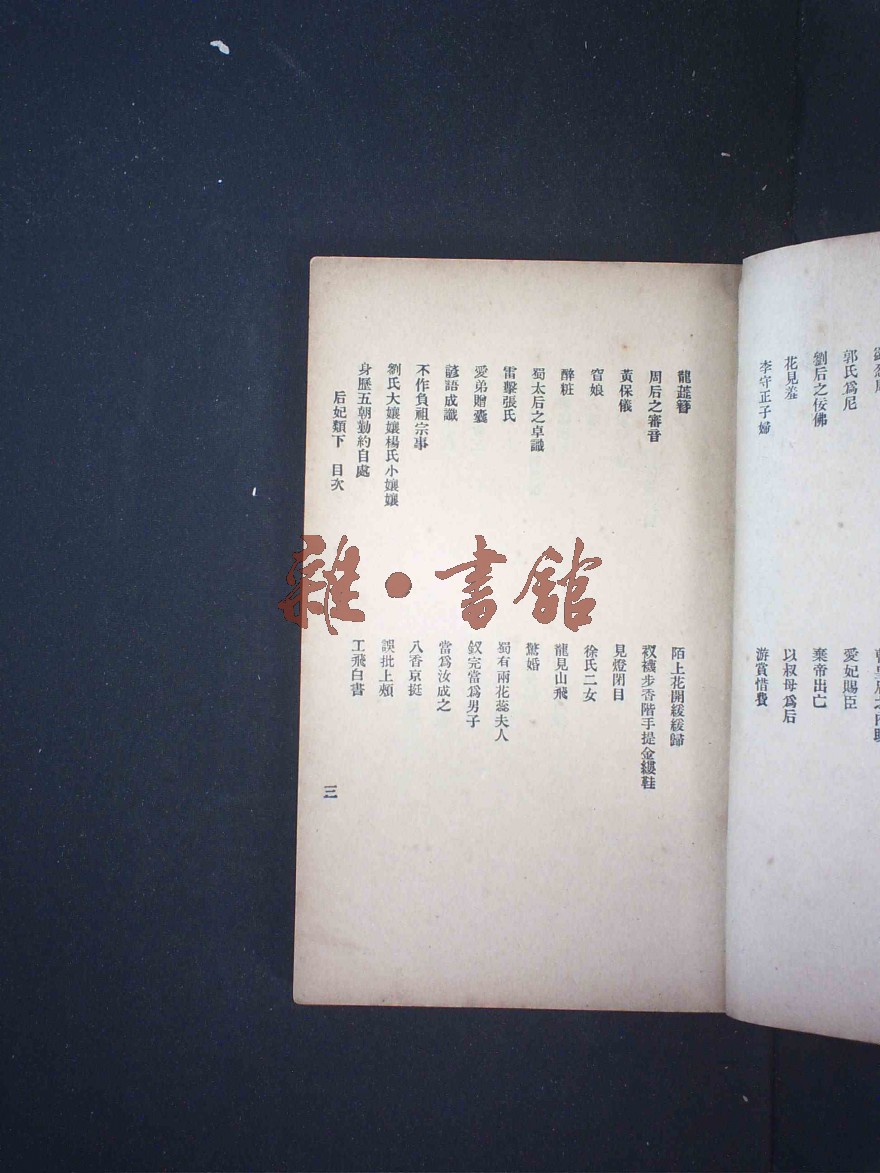 郭氏爲尼
劉后之佞佛
花見羞
李守正子婦
愛妃賜臣
棄帝出亡
以叔母爲后
游賞惜費
龍蕋簪
周后之審音
黃保儀
窅娘
醉粧
蜀太后之卓識
雷擊張氏
愛弟贈囊
諺語成讖
不作負祖宗事
劉氏大孃孃楊氏小孃孃
身歷五朝勤約自處
陌上花開緩緩歸
衩襪步香階手提金縷鞋
見燈閉目
徐氏二女
龍見山飛
驚婚
蜀有兩花蕊夫人
釵完當爲男子
當爲汝成之
八香京挺
誤批上頰
工飛白書
后妃類下 目次
三
雜·書館